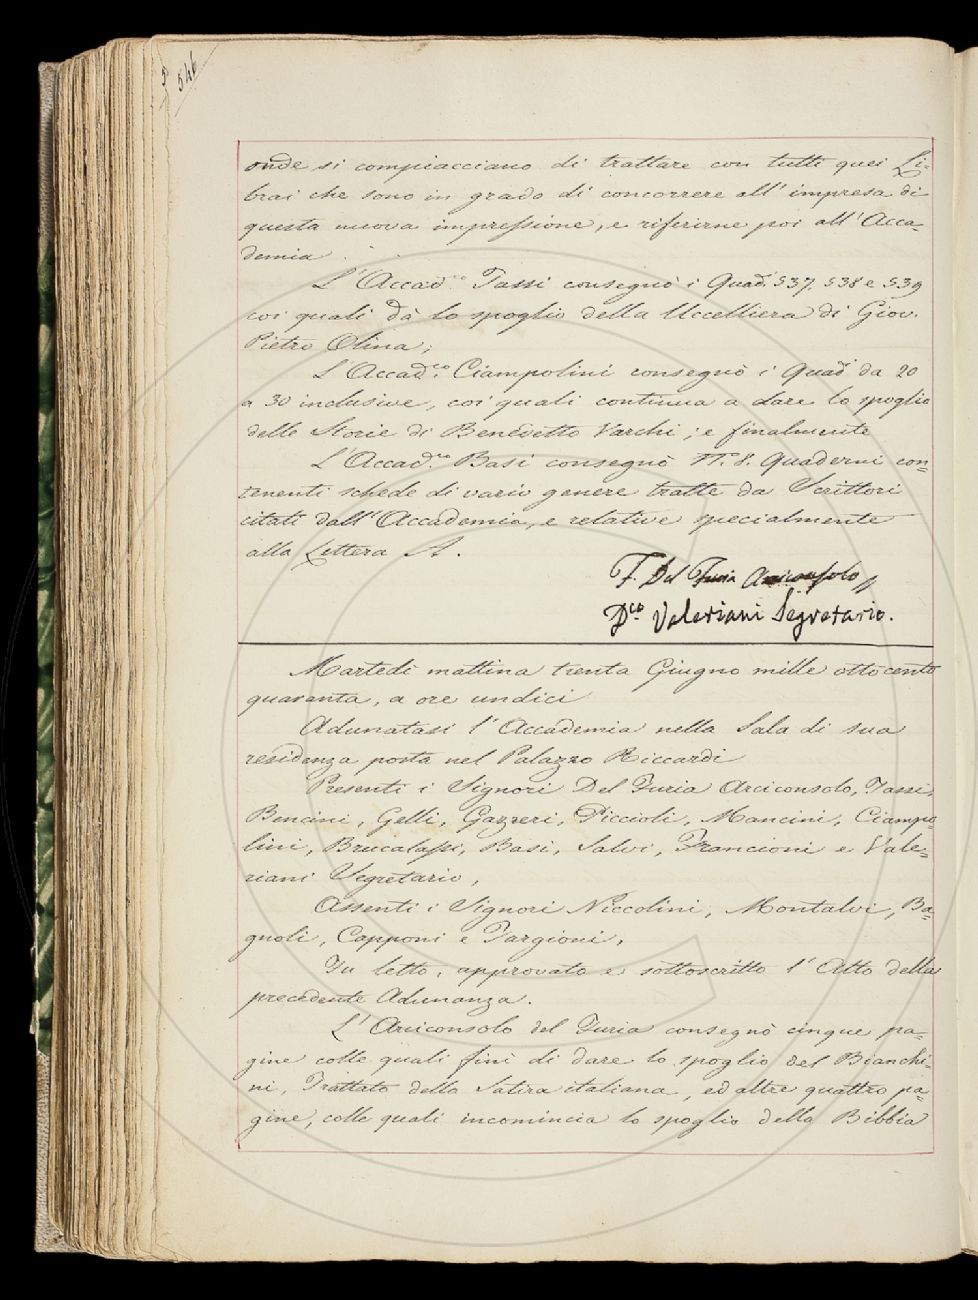 546
onde si compiacciano di trattare con tutti quei Li-
brai che sono in grado di concorrere all'impresa di
questa nuova impressione, e riferirne poi all'Acca-
demia.
L'Accad.co Tassi consegnò i Quad.i 537. 538 e 539
coi quali dà lo spoglio della Uccelliera di Giov.
Pietro Olina;
L'Accad.co Ciampolini consegnò i Quad.i da 20
a 30 inclusive, coi quali continua a dare lo spoglio
delle Storie di Benedetto Varchi; e finalmente
L'Accad.co Basi consegnò N. 8. Quaderni con=
tenenti schede di vario genere tratte da Scrittori
citati dall'Accademia, e relative specialmente
alla Lettera A.
F. Del Furia Arciconsolo
D.co Valeriani Segretario.
Martedì mattina trenta Giugno mille ottocento
quaranta, a ore undici
Adunatasi l'Accademia nella Sala di sua
residenza posta nel Palazzo Riccardi
Presenti i Signori Del Furia Arciconsolo, Tassi,
Bencini, Gelli, Gazzeri, Piccioli, Mancini, Ciampo=
lini, Brucalassi, Basi, Salvi, Francioni e Vale=
riani Segretario,
Assenti i Signori Niccolini, Montalvi, Ba=
gnoli, Capponi e Targioni,
Fu letto, approvato e sottoscritto l'Atto della
precedente Adunanza.
L'Arciconsolo del Furia consegnò cinque pa=
gine colle quali finì di dare lo spoglio del Bianchi=
ni, Trattato della Satira italiana, ed altre quattro pa=
gine, colle quali incomincia lo spoglio della Bibbia